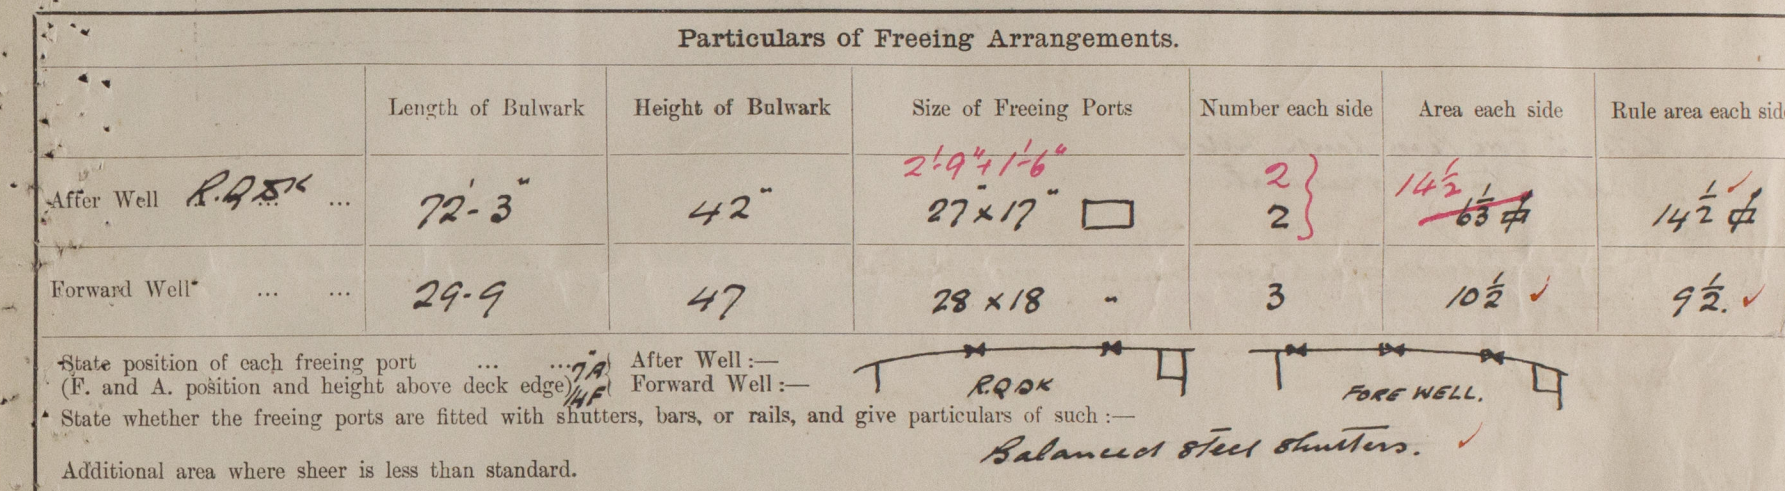 Particulars of Freeing Arrangements.
Length of Bulwark Height of Bulwark Size of Freeing Ports Number each side Area each side Rule area each sid
2'-9" + 1'-6" 2 14 1/2
After Well R.Q.DK ... ... 72'-3" 42" 27" x 17" 2 6 1/3 14 1/2
Forward Well ... ... 29-9 47 28 x 18 " 3 10 1/2 ✓ 9 1/2. ✓
State position of each freeing port ... ... 7"A After Well :—
(F. and A. position and height above deck edge) 14F Forward Well :— R.Q DK FORE WELL.
State whether the freeing ports are fitted with shutters, bars, or rails, and give particulars of such :—
Balanced steel shutters. ✓
Additional area where sheer is less than standard.